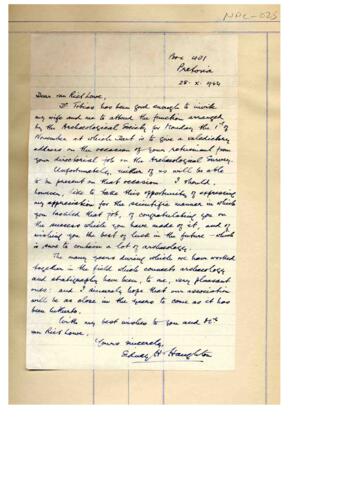 NPC-025
Box 401
Pretoria
28. X. 1944
Dear van Riet Lowe,
Dr Tobias has been good enough to invite
my wife and me to attend the function arranged
by the Archaeological Society for Monday the 1st of
November at which Dart is to give a valedictory
address on the occasion of your retirement from
your directorial job on the Archaeological Survey.
Unfortunately, neither of us will be able
to be present on that occasion. I should,
however, like to take this opportunity of expressing
my appreciation for the scientific manner in which
you tackled that job, of congratulating you on
the success which you have made of it, and of
wishing you the best of luck in the future - which
is sure to contain a lot of archaeology.
The many years during which we have worked
together in the field which connects archaeology
and stratigraphy have been, to me, very pleasant
ones: and I sincerely hope that our association
will be as close in the years to come as it has
been hitherto.
With my best wishes to you and
van Riet Lowe.
Yours sincerely,
Sidney H. Haughton